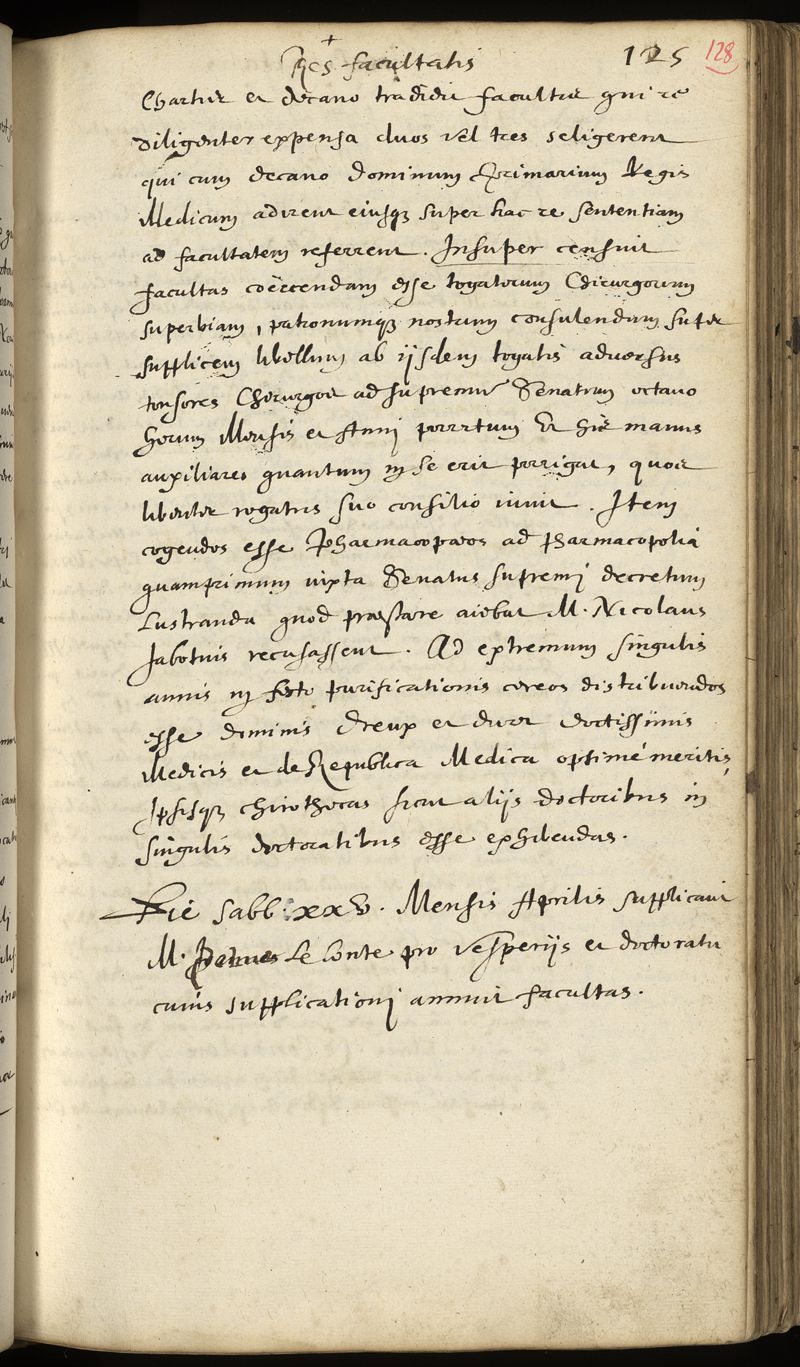 Res facultatis 125 128
Chartier et decano tradidit facultas qui re
diligenter expensa duos vel tres seligerent
qui cum decano dominum primarium Regis
Medicum adirent eiusq; super hac re sententiam
ad facultatem referrent. Insuper censuit
facultas coërcendam esse togatorum Chirurgorum
superbiam, patronumq; nostrum consulendum super
supplicem libellum ab ijsdem togatis adversus
tonsores Chirurgos ad supremum Senatum octavo
horum Mensis et Anni porrectum et his manus
auxiliares quantum in se erit porrigat, quos
libenter rogatus suo consilio iuvit. Item
cogendos esse Pharmacopoeos ad pharmacopolia
quamprimum iuxta Senatus supremj decretum
Lustranda quod praestare aiebat M. Nicolaus
Jabotuis recusassent. Ad extremum singulis
annis in festo purificationis cereos distribuendos
esse dominis Dreux et doctissimis
Medicis et de Republica Medica optime meritis,
Ipsisq; chirothecas sicut alijs doctoribus in
singulis doctoratibus esse exhibendas.
Die sabb: xxv. Mensis Aprilis supplicavit
M. Petrus Le Conte pro vesperijs et doctoratu
cuius supplicationj annuit facultas.